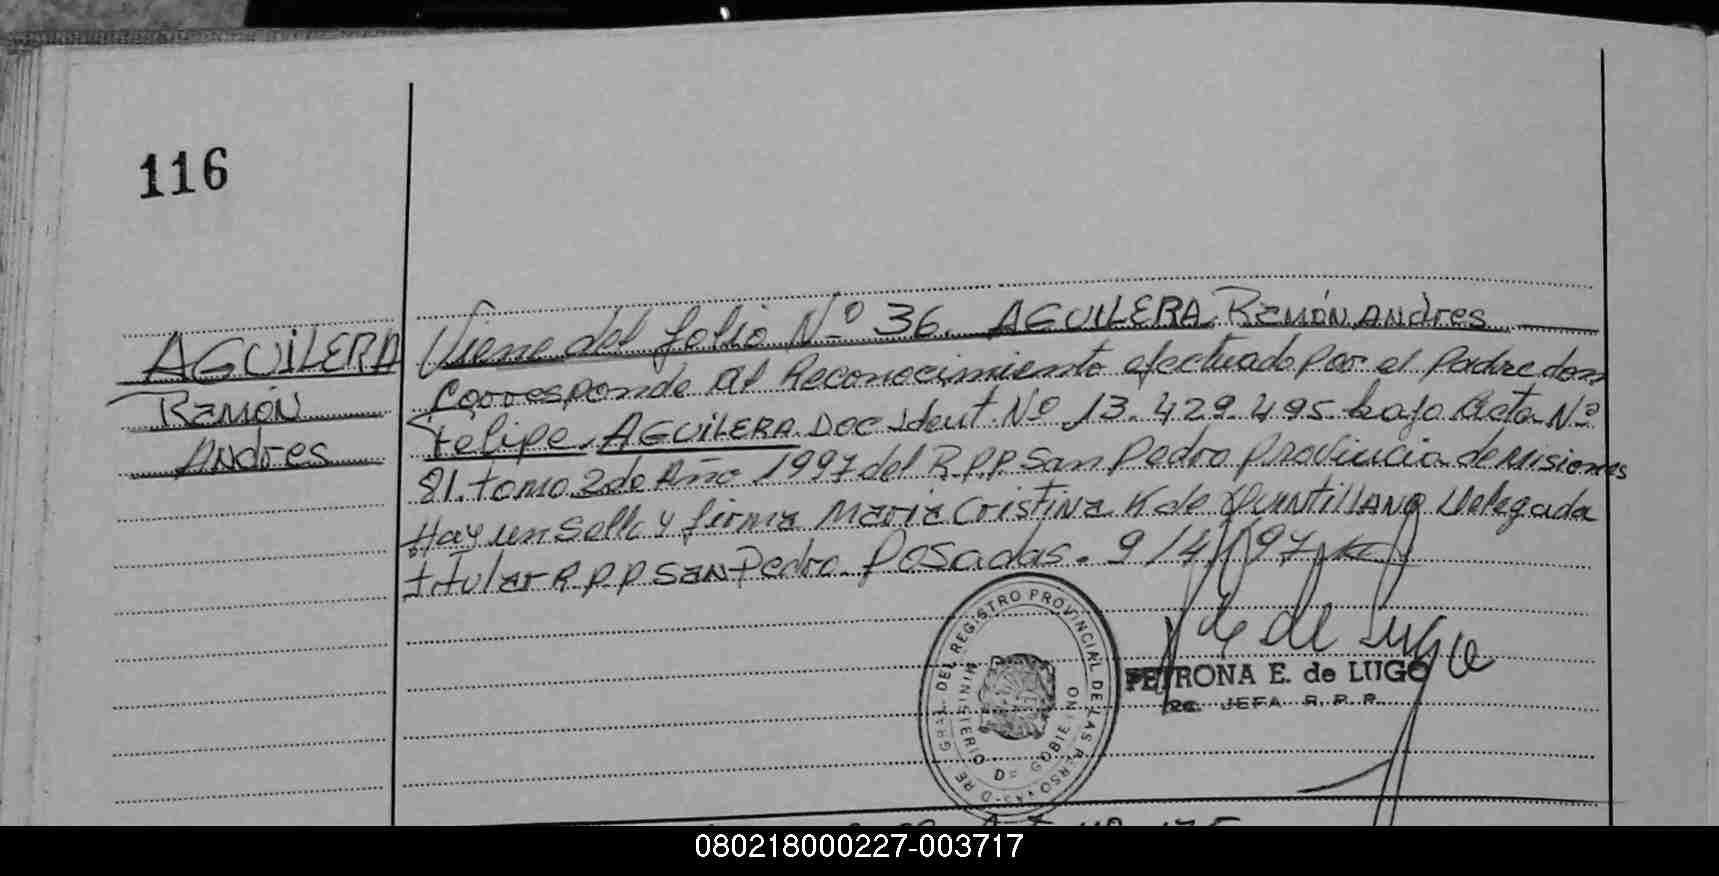 116
AGUILERA
Ramón
Andres
Viene del folio Nº 36. AGUILERA Ramón Andres
Corresponde al Reconocimiento efectuado por el padre don
Felipe AGUILERA Doc Ident. Nº 13.429.495 bajo Acta Nº
81. tomo 2do Año 1997 del R.P.P San Pedro Provincia de Misiones
Hay un Sello y firma Maria Cristina K de Quintillano Delegada
titular R.P.P San Pedro. Posadas. 9/4/97
DIRE GRAL DEL REGISTRO PROVINCIAL DE LAS PERSONAS
MINISTERIO DE GOBIERNO
de Lugo
PETRONA E. de LUGO
JEFA R.P.P.
080218000227-003717